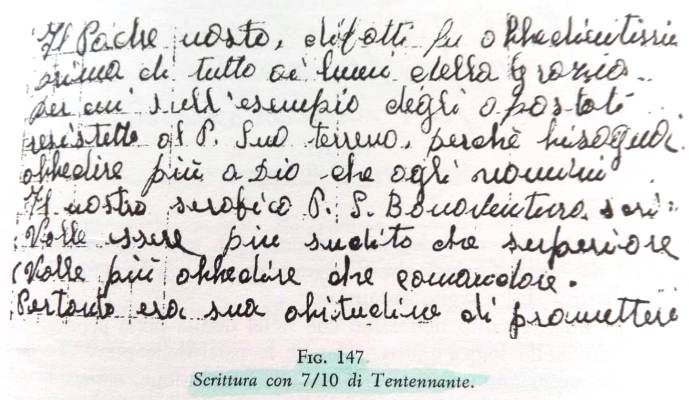 Il Padre nosto, difatti fu obbedientissi
prima di tutto ai lumi della grazia
per cui sull'esempio degli apostoli
resistette al P. Suo terreno, perchè bisogna
obbedire più a Dio che agli uomini
Il nostro serafico P. S. Bonaventura scri:
Volle essere più sudito che superiore
Volle più obbedire che comandare.
Pertanto era sua abitudine di promettere
FIG. 147
Scrittura con 7/10 di Tentennante.